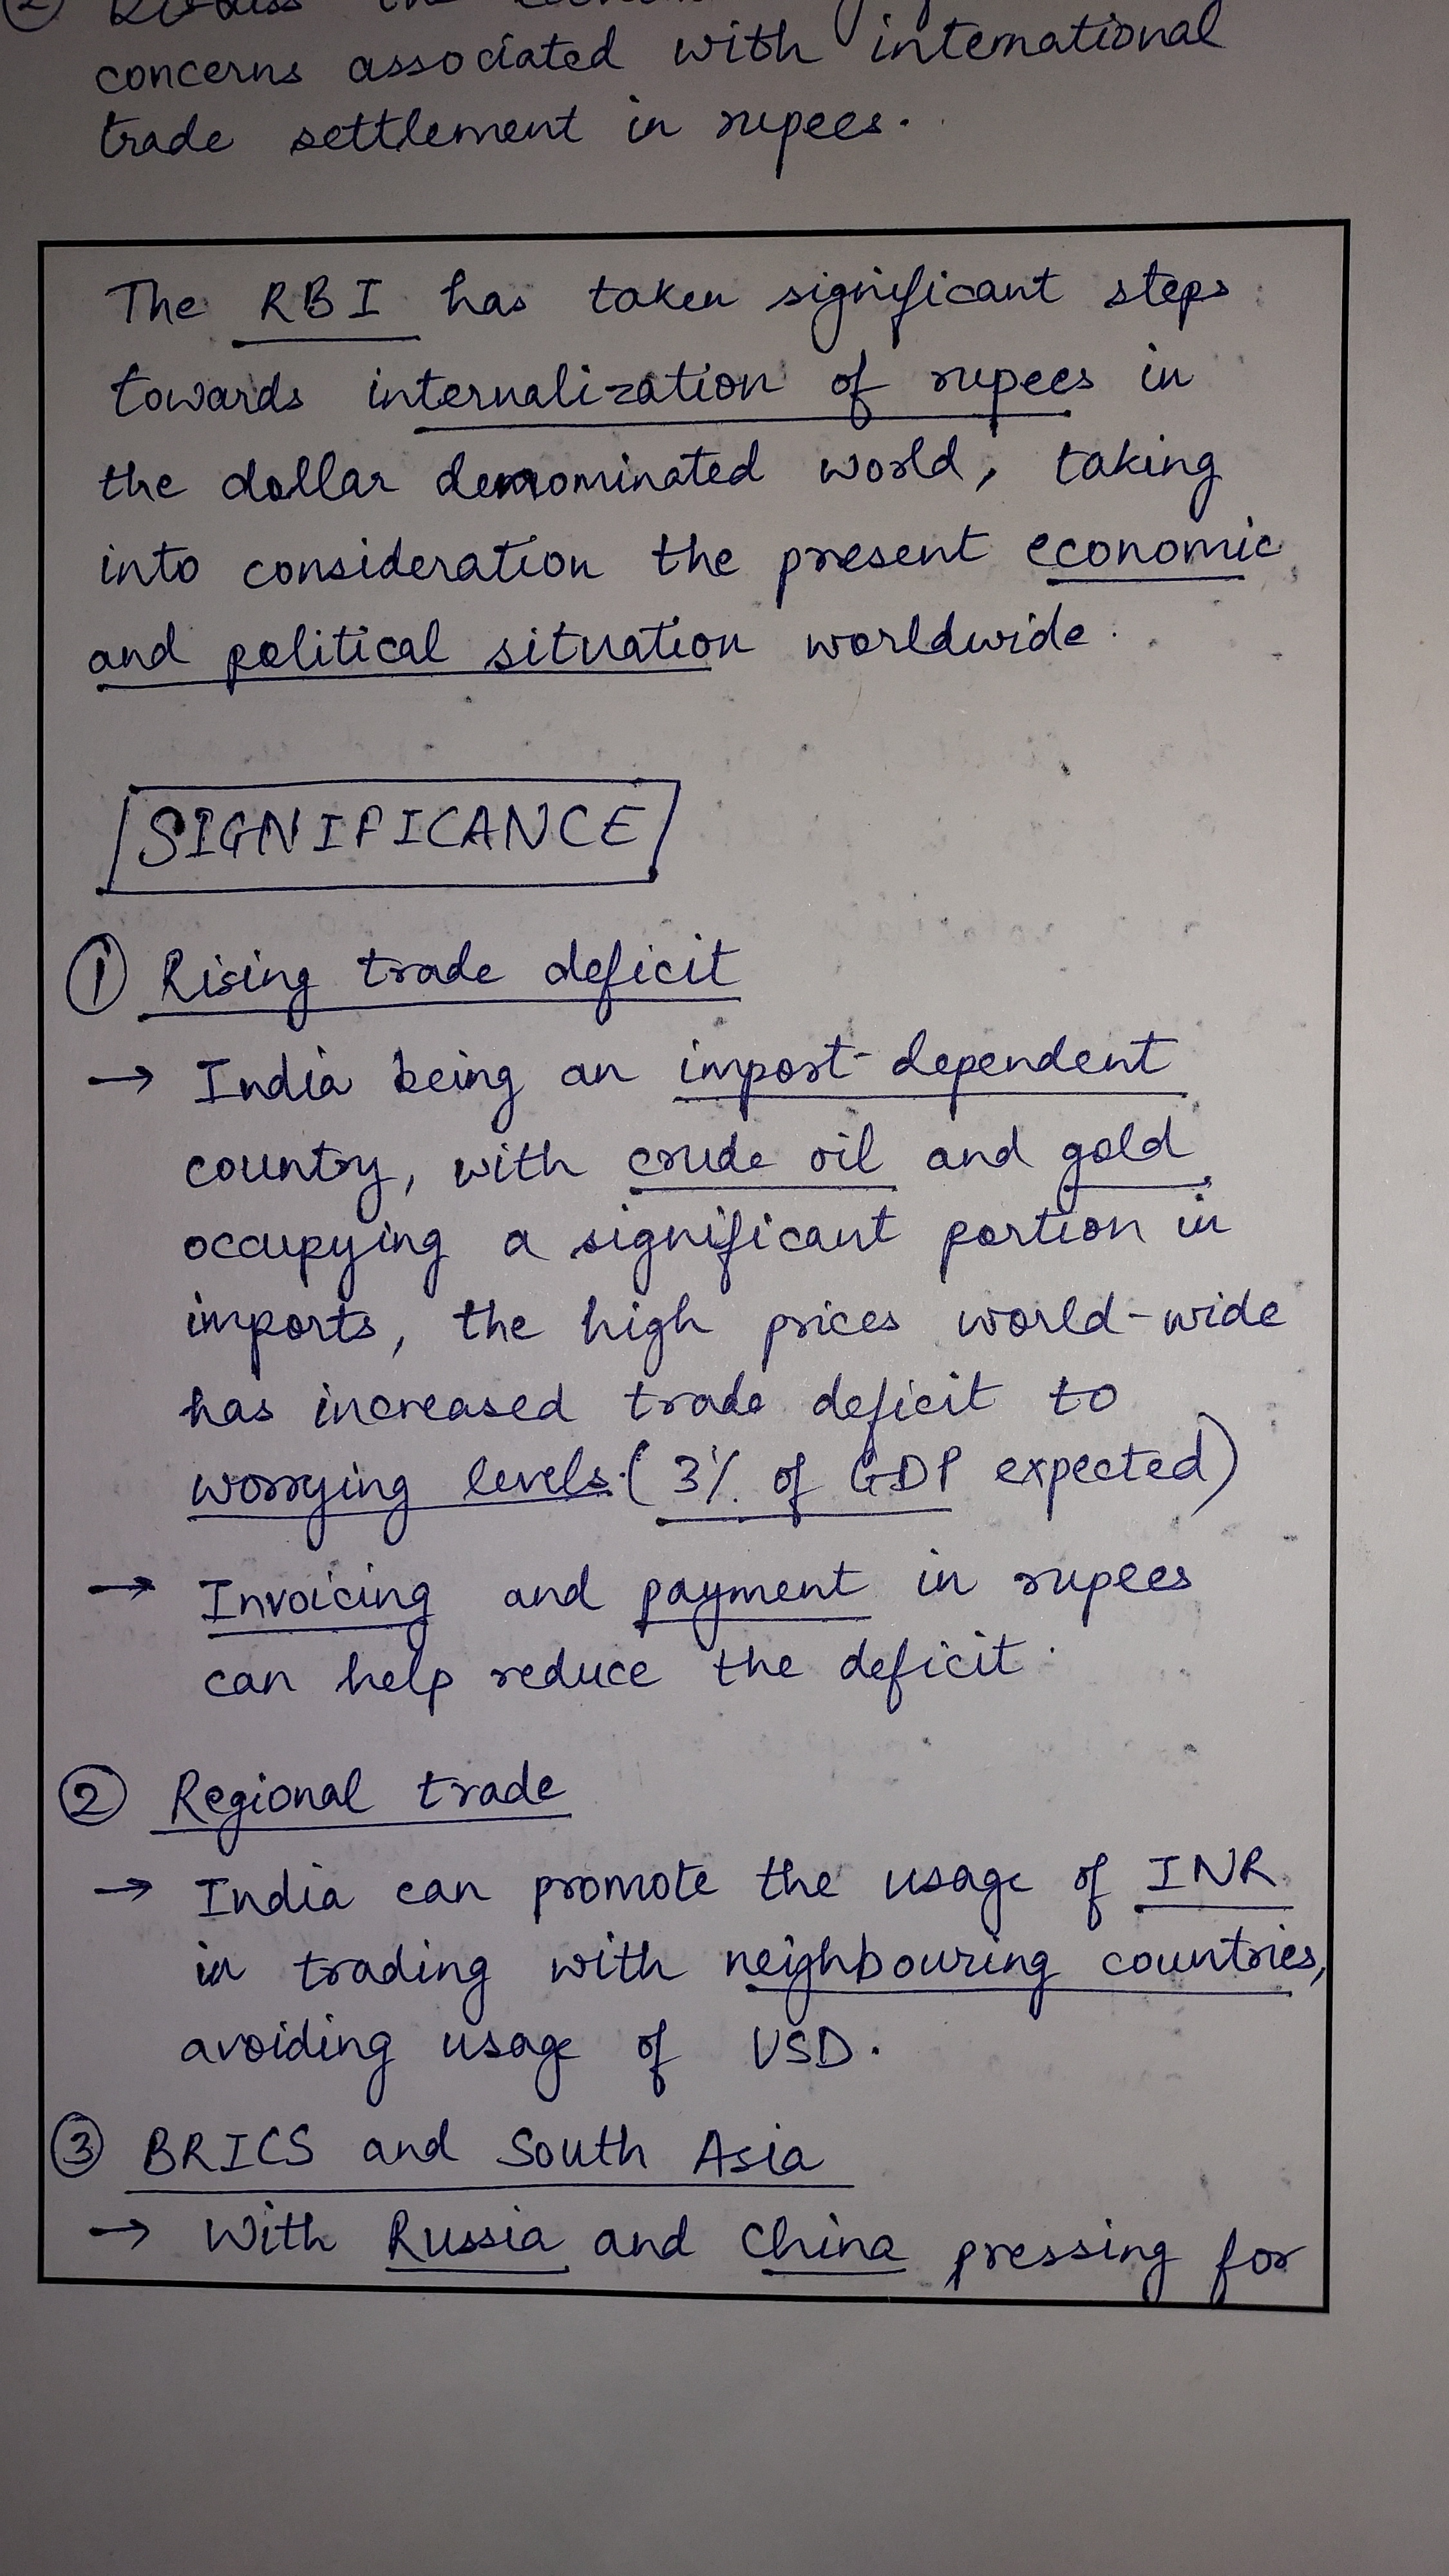 ② the
concerns associated with international
trade settlement in rupees.
The RBI has taken significant steps
towards internalization of rupees in
the dollar denominated world, taking
into consideration the present economic
and political situation worldwide.
SIGNIFICANCE
① Rising trade deficit
→ India being an import-dependent
country, with crude oil and gold
occupying a significant portion in
imports, the high prices world-wide
has increased trade deficit to
worrying levels. (3% of GDP expected)
→ Invoicing and payment in rupees
can help reduce the deficit.
② Regional trade
→ India can promote the usage of INR
in trading with neighbouring countries,
avoiding usage of USD.
③ BRICS and South Asia
→ With Russia and China pressing for